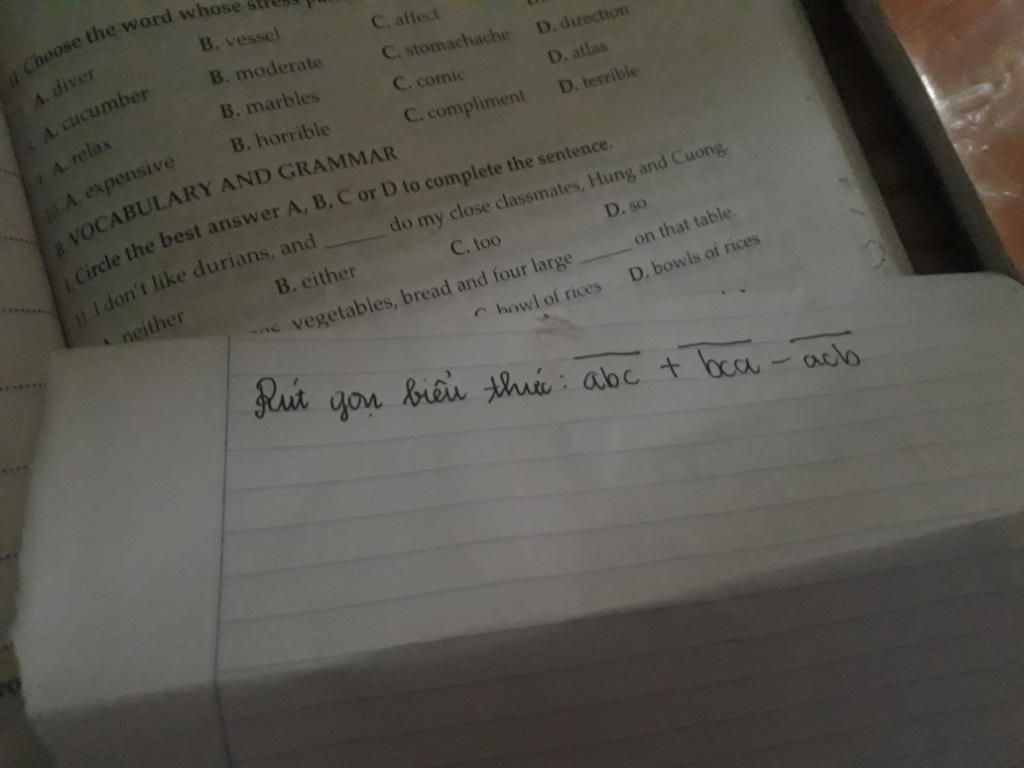 II. Choose the word whose stress
A. diver B. vessel C. affect D.
A. cucumber B. moderate C. stomachache D. direction
A. relax B. marbles C. comic D. atlas
10. A. expensive B. horrible C. compliment D. terrible
B. VOCABULARY AND GRAMMAR
I. Circle the best answer A, B, C or D to complete the sentence.
11. I don't like durians, and ______ do my close classmates, Hung and Cuong.
A. neither B. either C. too D. so
vegetables, bread and four large ______ on that table.
C. bowl of rices D. bowls of rices
Rút gọn biểu thức: a͞b͞c͞ + b͞c͞a͞ - a͞c͞b͞